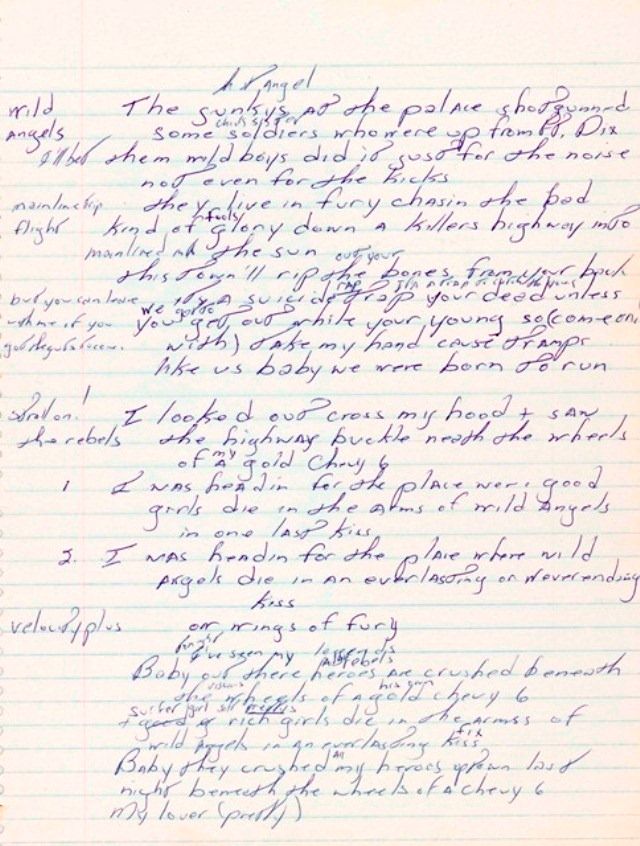 Angel
wild The junkys at the palace shotgunned
Angels some soldiers who were up from Ft. Dix
I'll bet them wild boys did it just for the noise
not even for the kicks
mainline trip they live in fury chasin the bad
fools
flight kind of glory down a killers highway into
mainlined the sun
out your
this town'll rip the bones from your back
rap It's a trap to catch the young
but you can leave its a suicide trap your dead unless
we gotta
with me if you you get out while your young so (come on
got the guts with) take my hand cause tramps
like us baby we were born to run
! I looked out cross my hood + saw
the rebels the highway buckle neath the wheels
my
of a gold Chevy 6
1. I was headin for the place were good
girls die in the arms of wild Angels
in one last kiss
2. I was headin for the place where wild
Angels die in an everlasting or neverending
kiss
velocity plus on wings of fury
I've seen my
rebels
Baby out there heroes are crushed beneath
his own
the wheels of a gold chevy 6
surfer girl
+ good or rich girls die in the armss of
fix
wild Angels in an everlasting kiss
Baby they crushed my heroes uptown last
night beneath the wheels of a chevy 6
My lover (pretty)